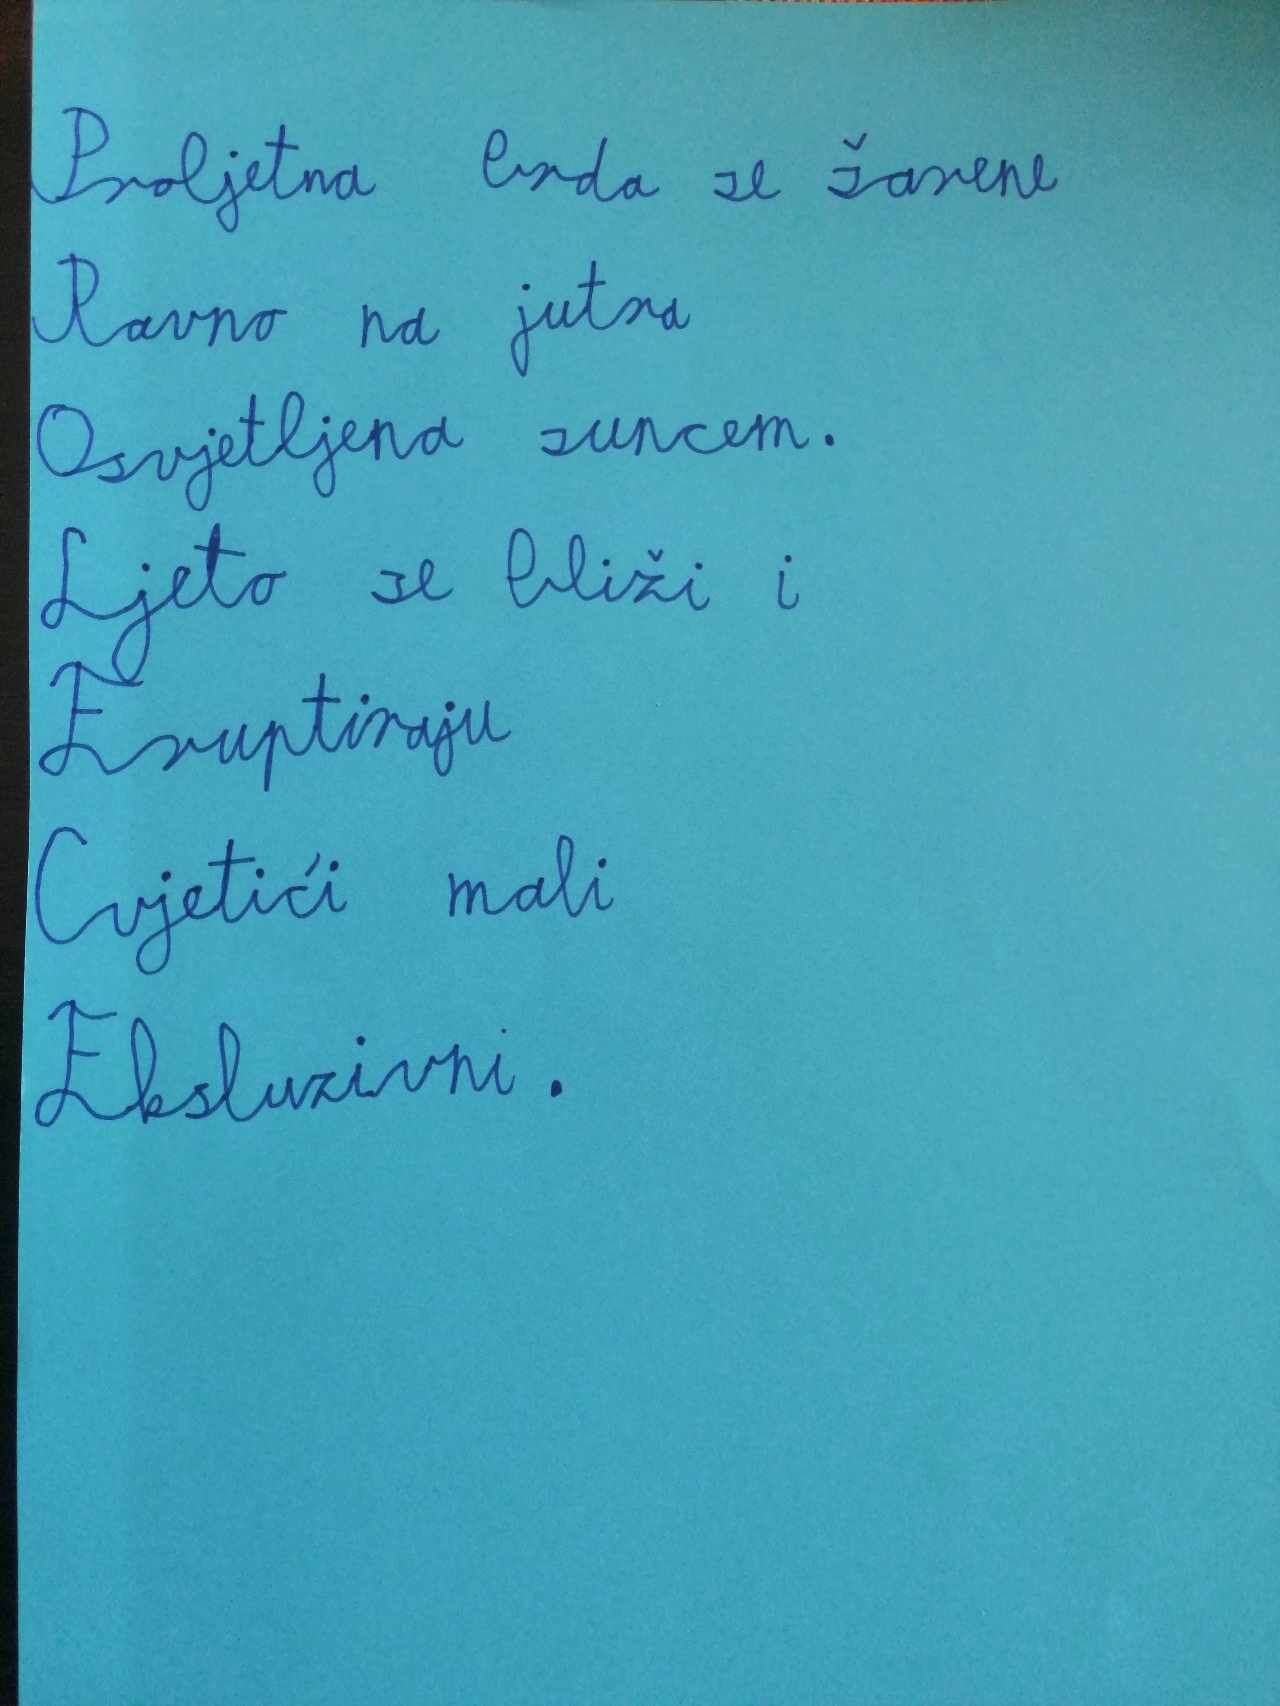 Proljetna brda se šarene
Ravno na jutra
Osvjetljena suncem.
Ljeto se bliži i
Eruptiraju
Cvjetići mali
Eksluzivni.